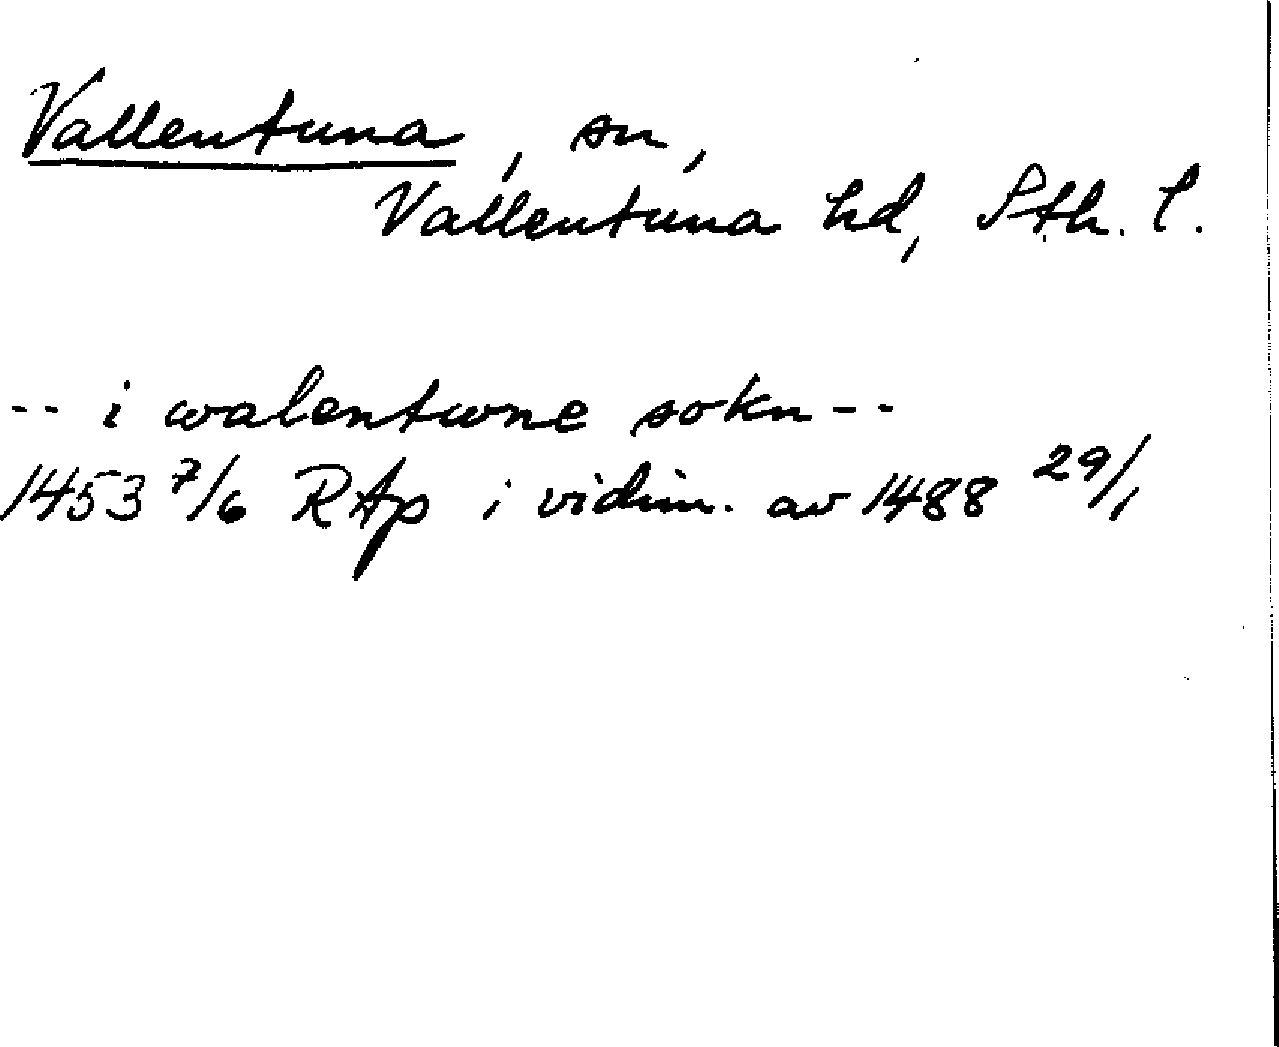 Vallentuna, sn,
Vallentuna hd, Sth. l.
-- i walentwne sokn --
1453 7/6 RAp i vidim. av 1488 29/1